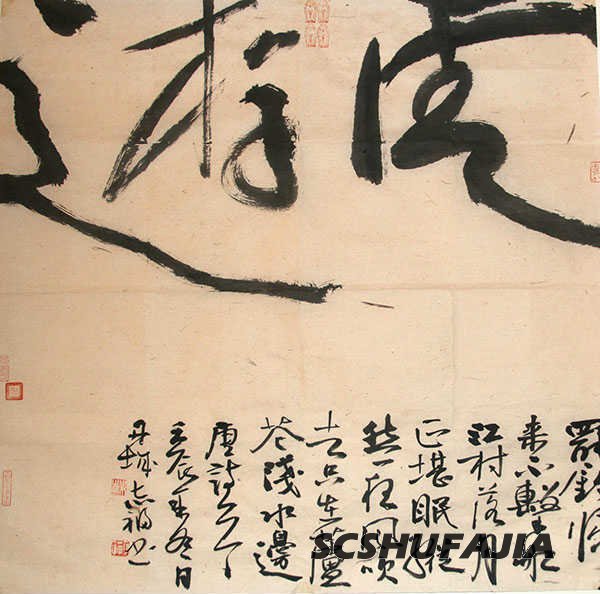 遊
罷釣歸
来不繫船
江村落月
正堪眠縱
然一夜風吹
去只在蘆
花淺水邊
唐詩
壬辰年冬日
丹城志福书
SCSHUFAJIA